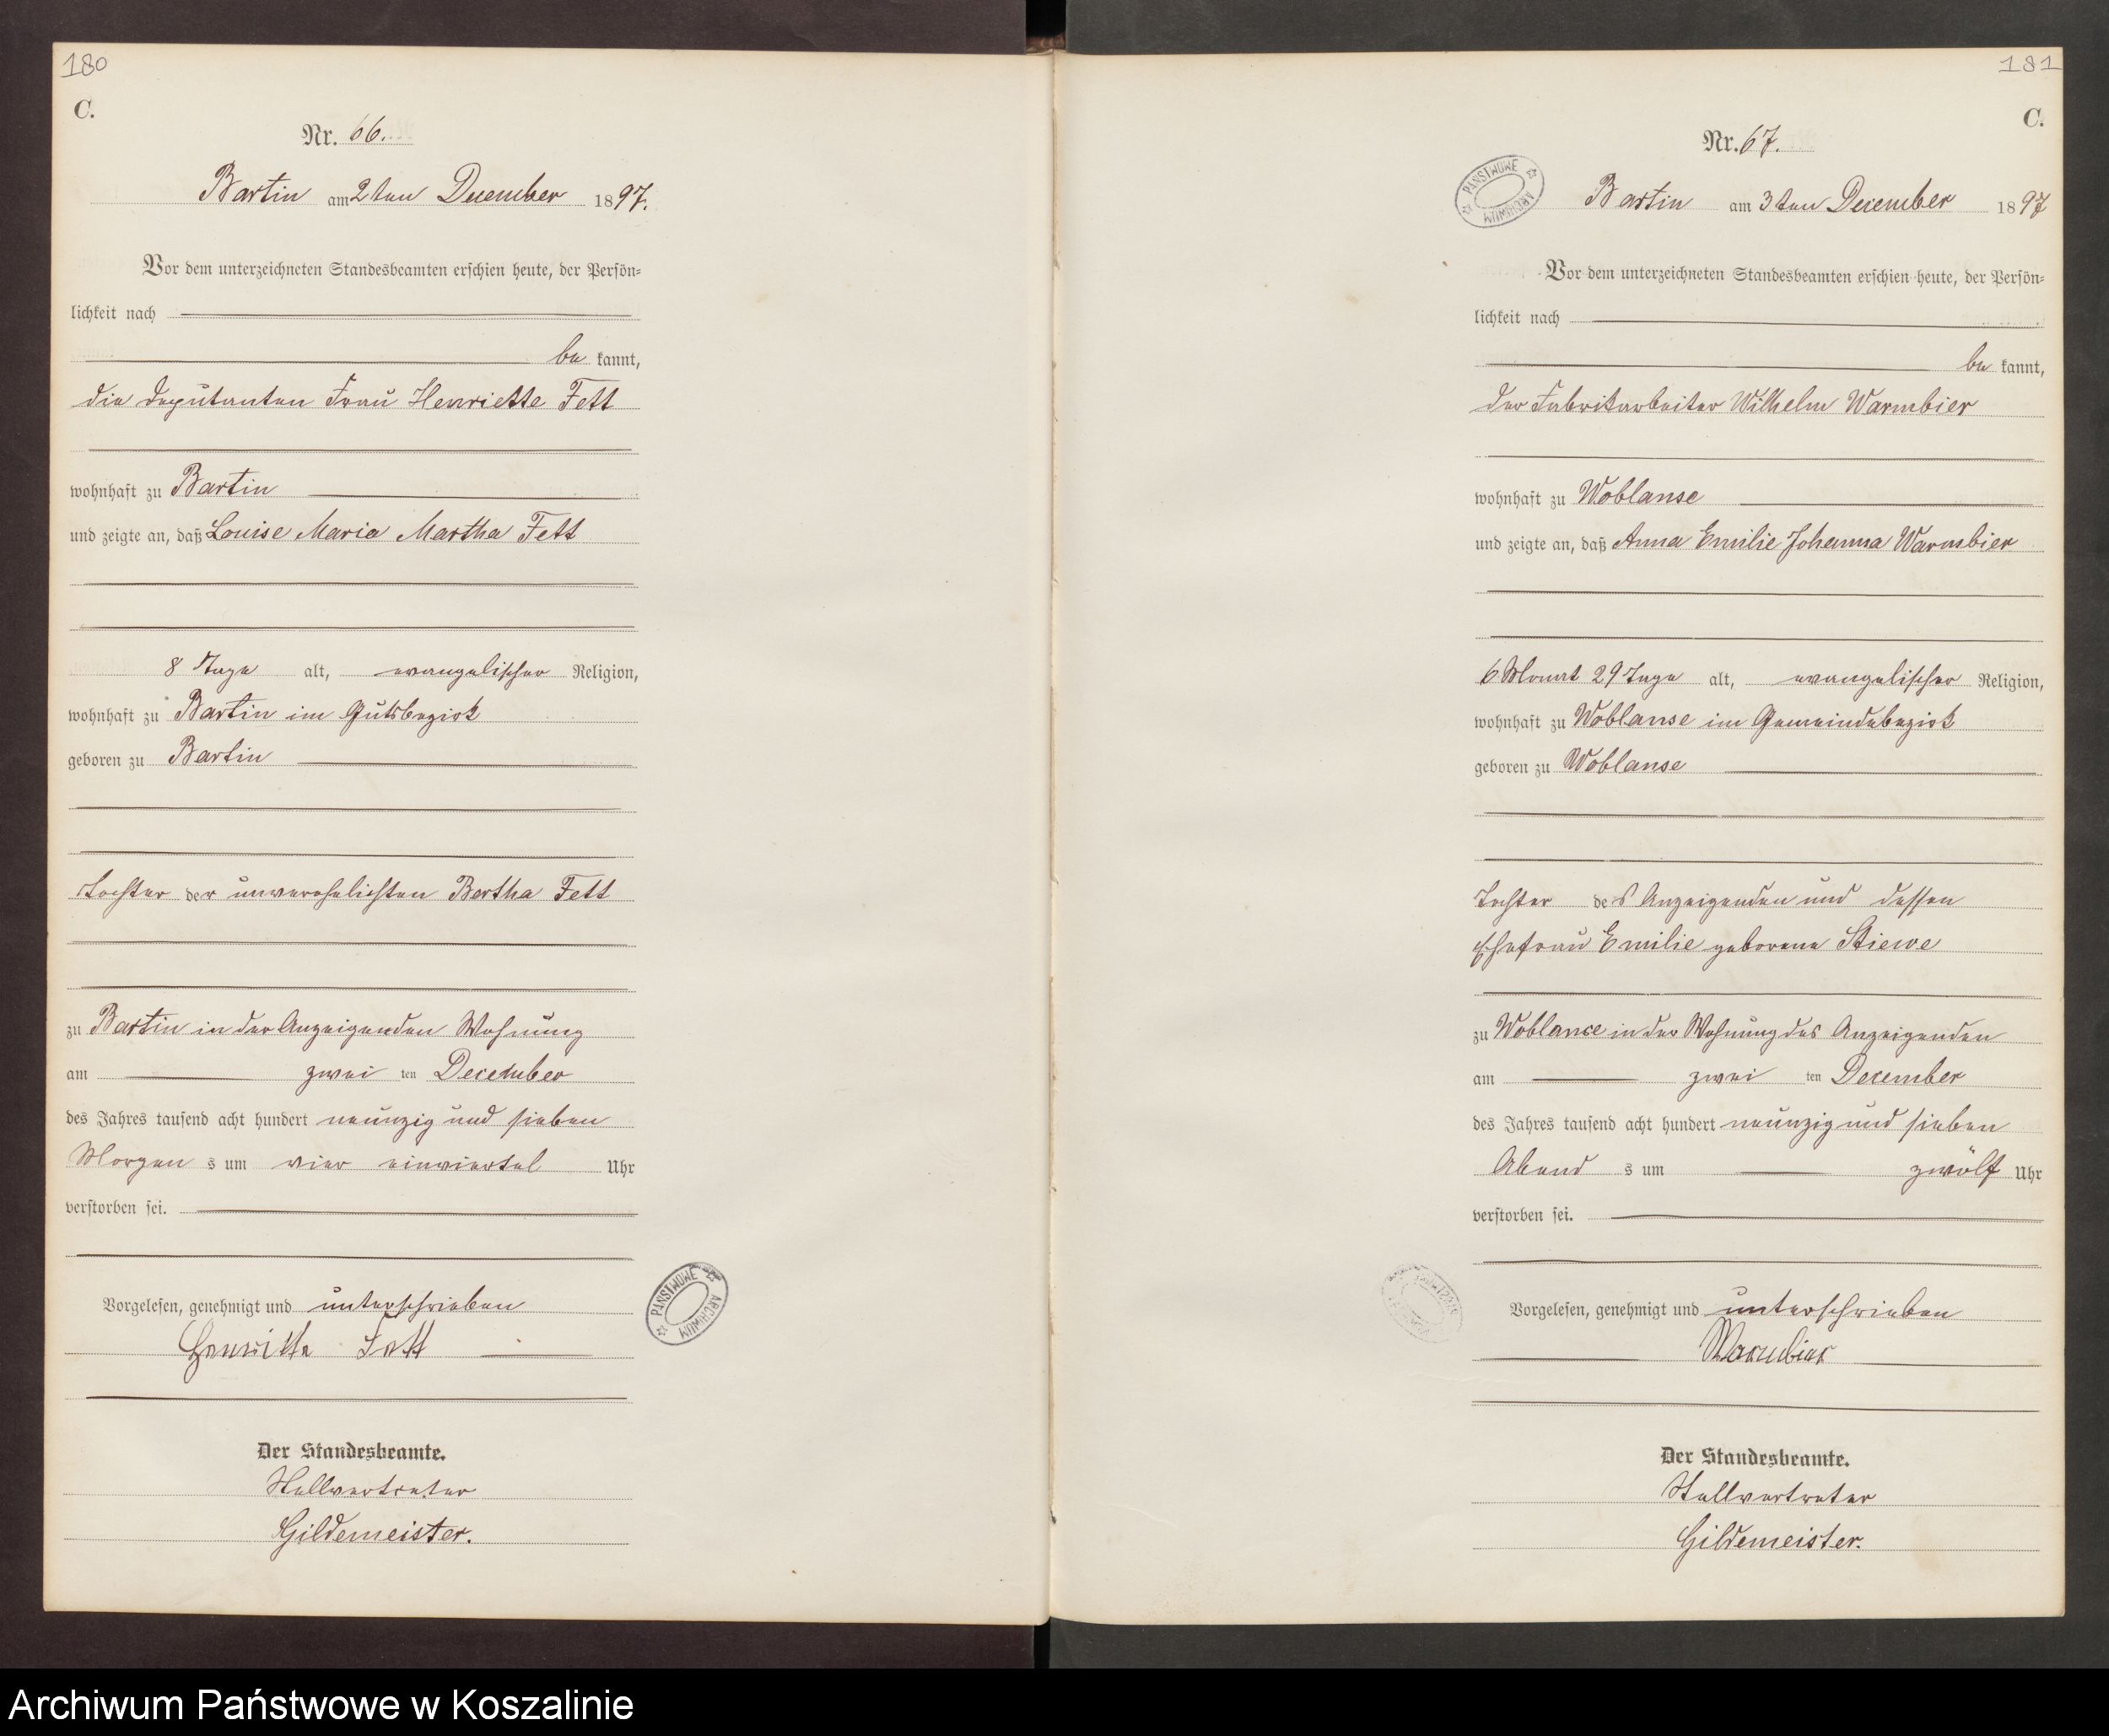 180
C.
Nr. 66.
Bartin am 2ten December 1897.
Vor dem unterzeichneten Standesbeamten erschien heute, der Persön=
lichkeit nach
be kannt,
die Deputanten Frau Henriette Fett
wohnhaft zu Bartin
und zeigte an, daß Louise Maria Martha Fett
8 Tage alt, evangelischer Religion,
wohnhaft zu Bartin im Gutsbezirk
geboren zu Bartin
Tochter der unverehelichten Bertha Fett
zu Bartin in der Anzeigenden Wohnung
am zwei ten December
des Jahres tausend acht hundert neunzig und sieben
Morgen s um vier einviertel Uhr
verstorben sei.
Vorgelesen, genehmigt und unterschrieben
Henriette Fett
PAŃSTWOWE ARCHIWUM
Der Standesbeamte.
Stellvertreter
Gildemeister.
181
C.
Nr. 67.
PAŃSTWOWE ARCHIWUM
Bartin am 3ten December 1897
Vor dem unterzeichneten Standesbeamten erschien heute, der Persön=
lichkeit nach
be kannt,
der Fabrikarbeiter Wilhelm Warmbier
wohnhaft zu Woblanse
und zeigte an, daß Anna Emilie Johanna Warmbier
6 Monat 29 Tage alt, evangelischer Religion,
wohnhaft zu Woblanse im Gemeindebezirk
geboren zu Woblanse
Tochter des Anzeigenden und dessen
Ehefrau Emilie geborene Stiewe
zu Woblanse in der Wohnung des Anzeigenden
am zwei ten December
des Jahres tausend acht hundert neunzig und sieben
Abend s um zwölf Uhr
verstorben sei.
Vorgelesen, genehmigt und unterschrieben
Warmbier
Der Standesbeamte.
Stellvertreter
Gildemeister.
Archiwum Państwowe w Koszalinie